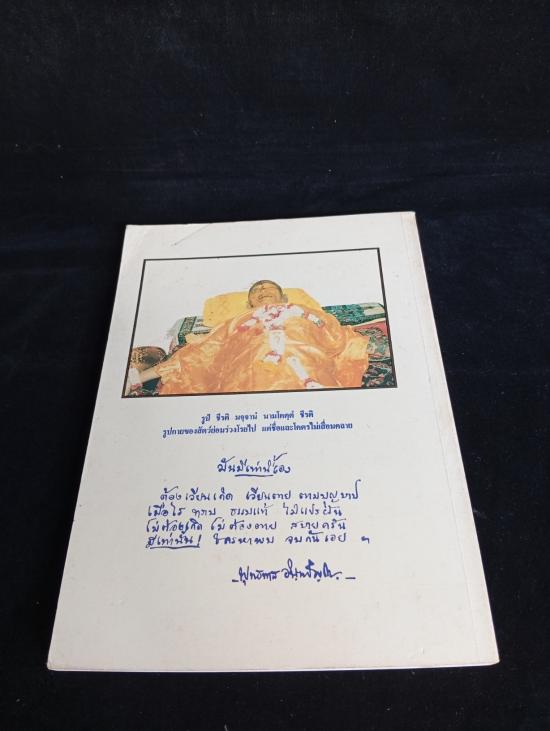 รูปํ ชีรติ มจฺจานํ นามโคตฺตํ น ชีรติ
รูปกายของสัตว์ย่อมร่วงโรยไป แต่ชื่อและโคตรไม่เสื่อมคลาย
มันมีเท่านี้เอง
ต้องเวียนเกิด เวียนตาย ตามบุญบาป
เมื่อไร ทราบ ธรรมแท้ ไม่แปรผัน
ไม่ต้องเกิด ไม่ต้องตาย สบายครัน
มีเท่านั้น! ใครหาพบ จบกันเอย ฯ
พุทธทาส อินฺทปญฺโญ